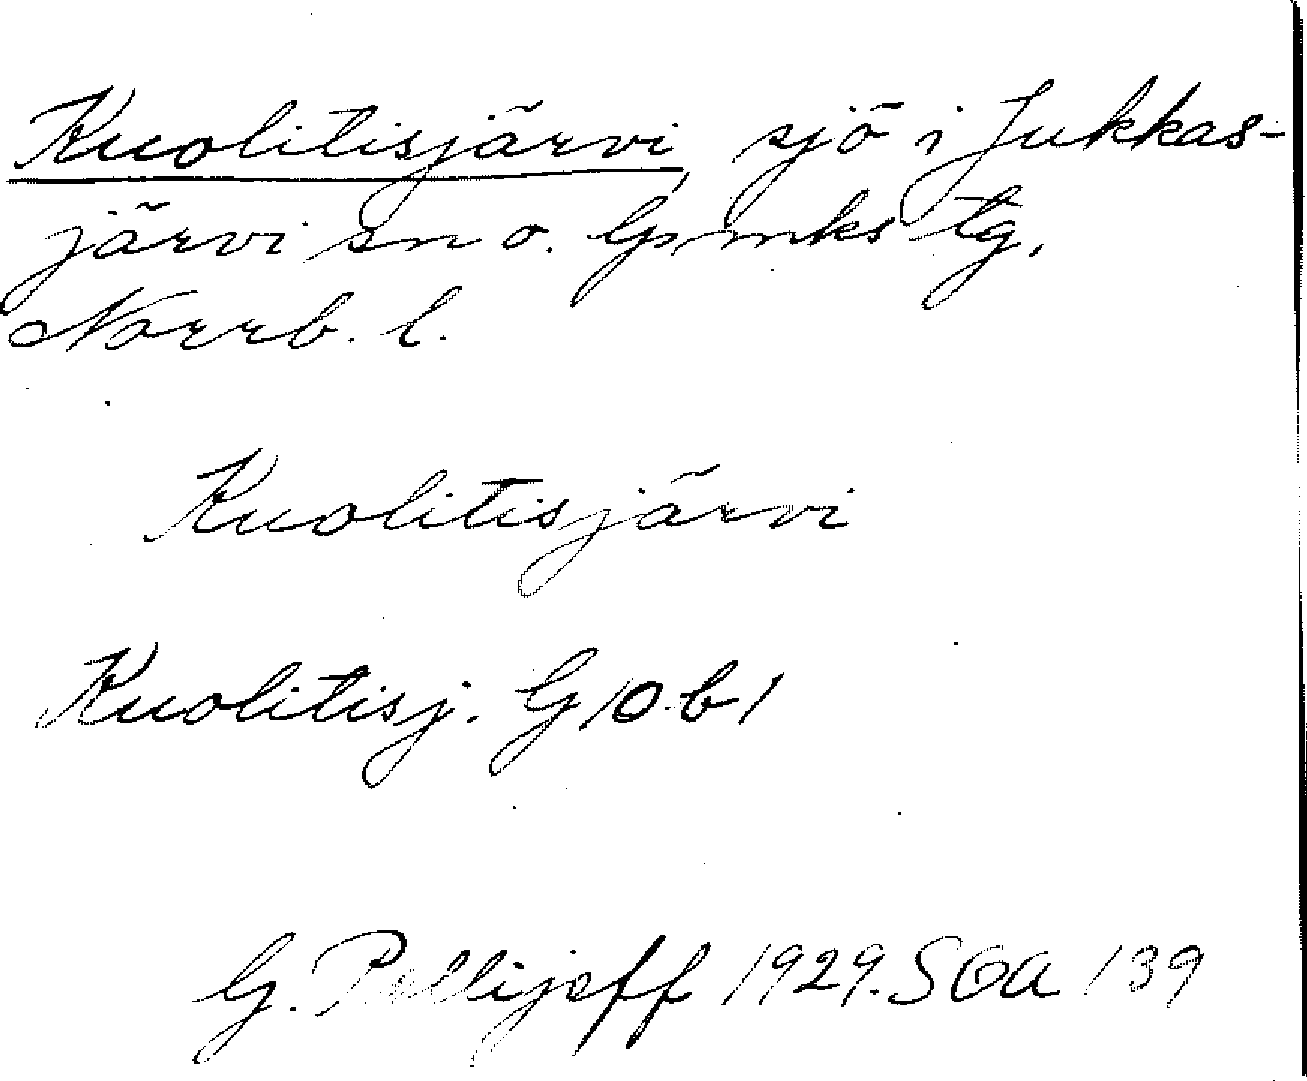 Kuolitisjärvi sjö i Jukkas-
järvi sn o. lpmks tg,
Norrb. l.
Kuolitisjärvi
Kuolitisj. G 10 b 1
G. Pellijeff 1929. SOA 139